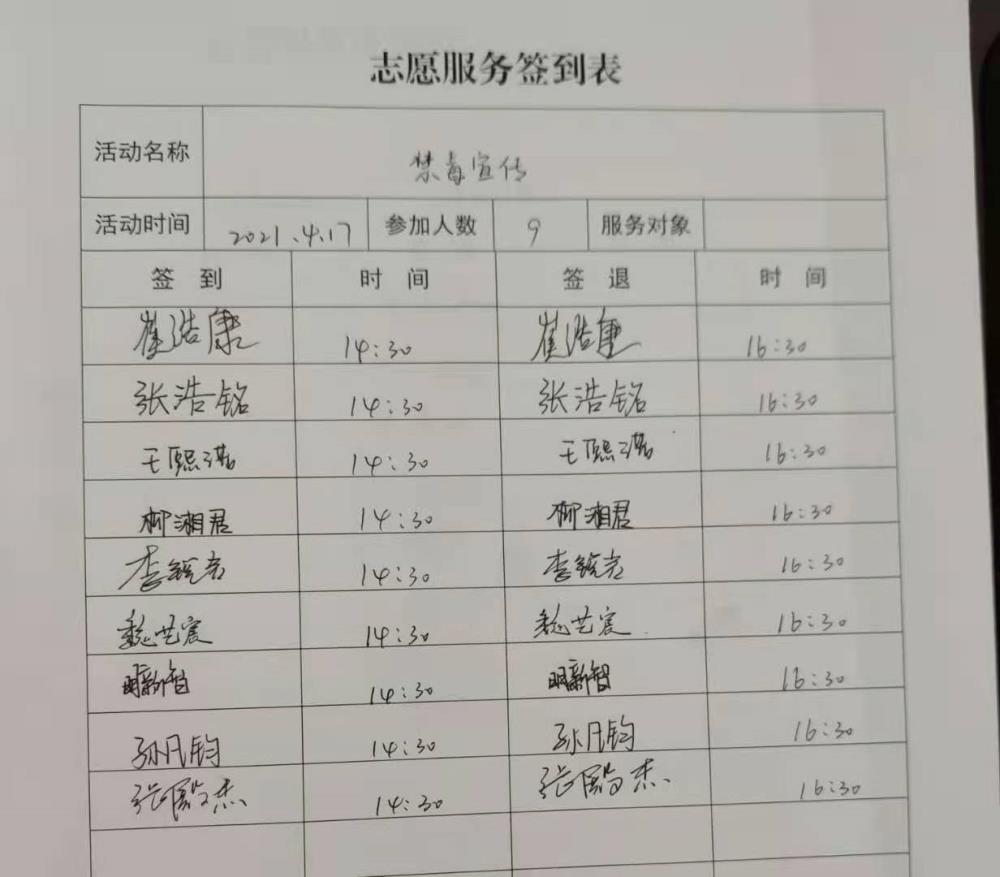 志愿服务签到表
活动名称 禁毒宣传
活动时间 2021.4.17 参加人数 9 服务对象
签到 时间 签退 时间
崔浩康 14:30 崔浩康 16:30
张浩铭 14:30 张浩铭 16:30
王熙 14:30 王熙 16:30
柳湘君 14:30 柳湘君 16:30
李 14:30 李 16:30
魏艺宸 14:30 魏艺宸 16:30
明新智 14:30 明新智 16:30
孙凡钧 14:30 孙凡钧 16:30
张殿杰 14:30 张殿杰 16:30